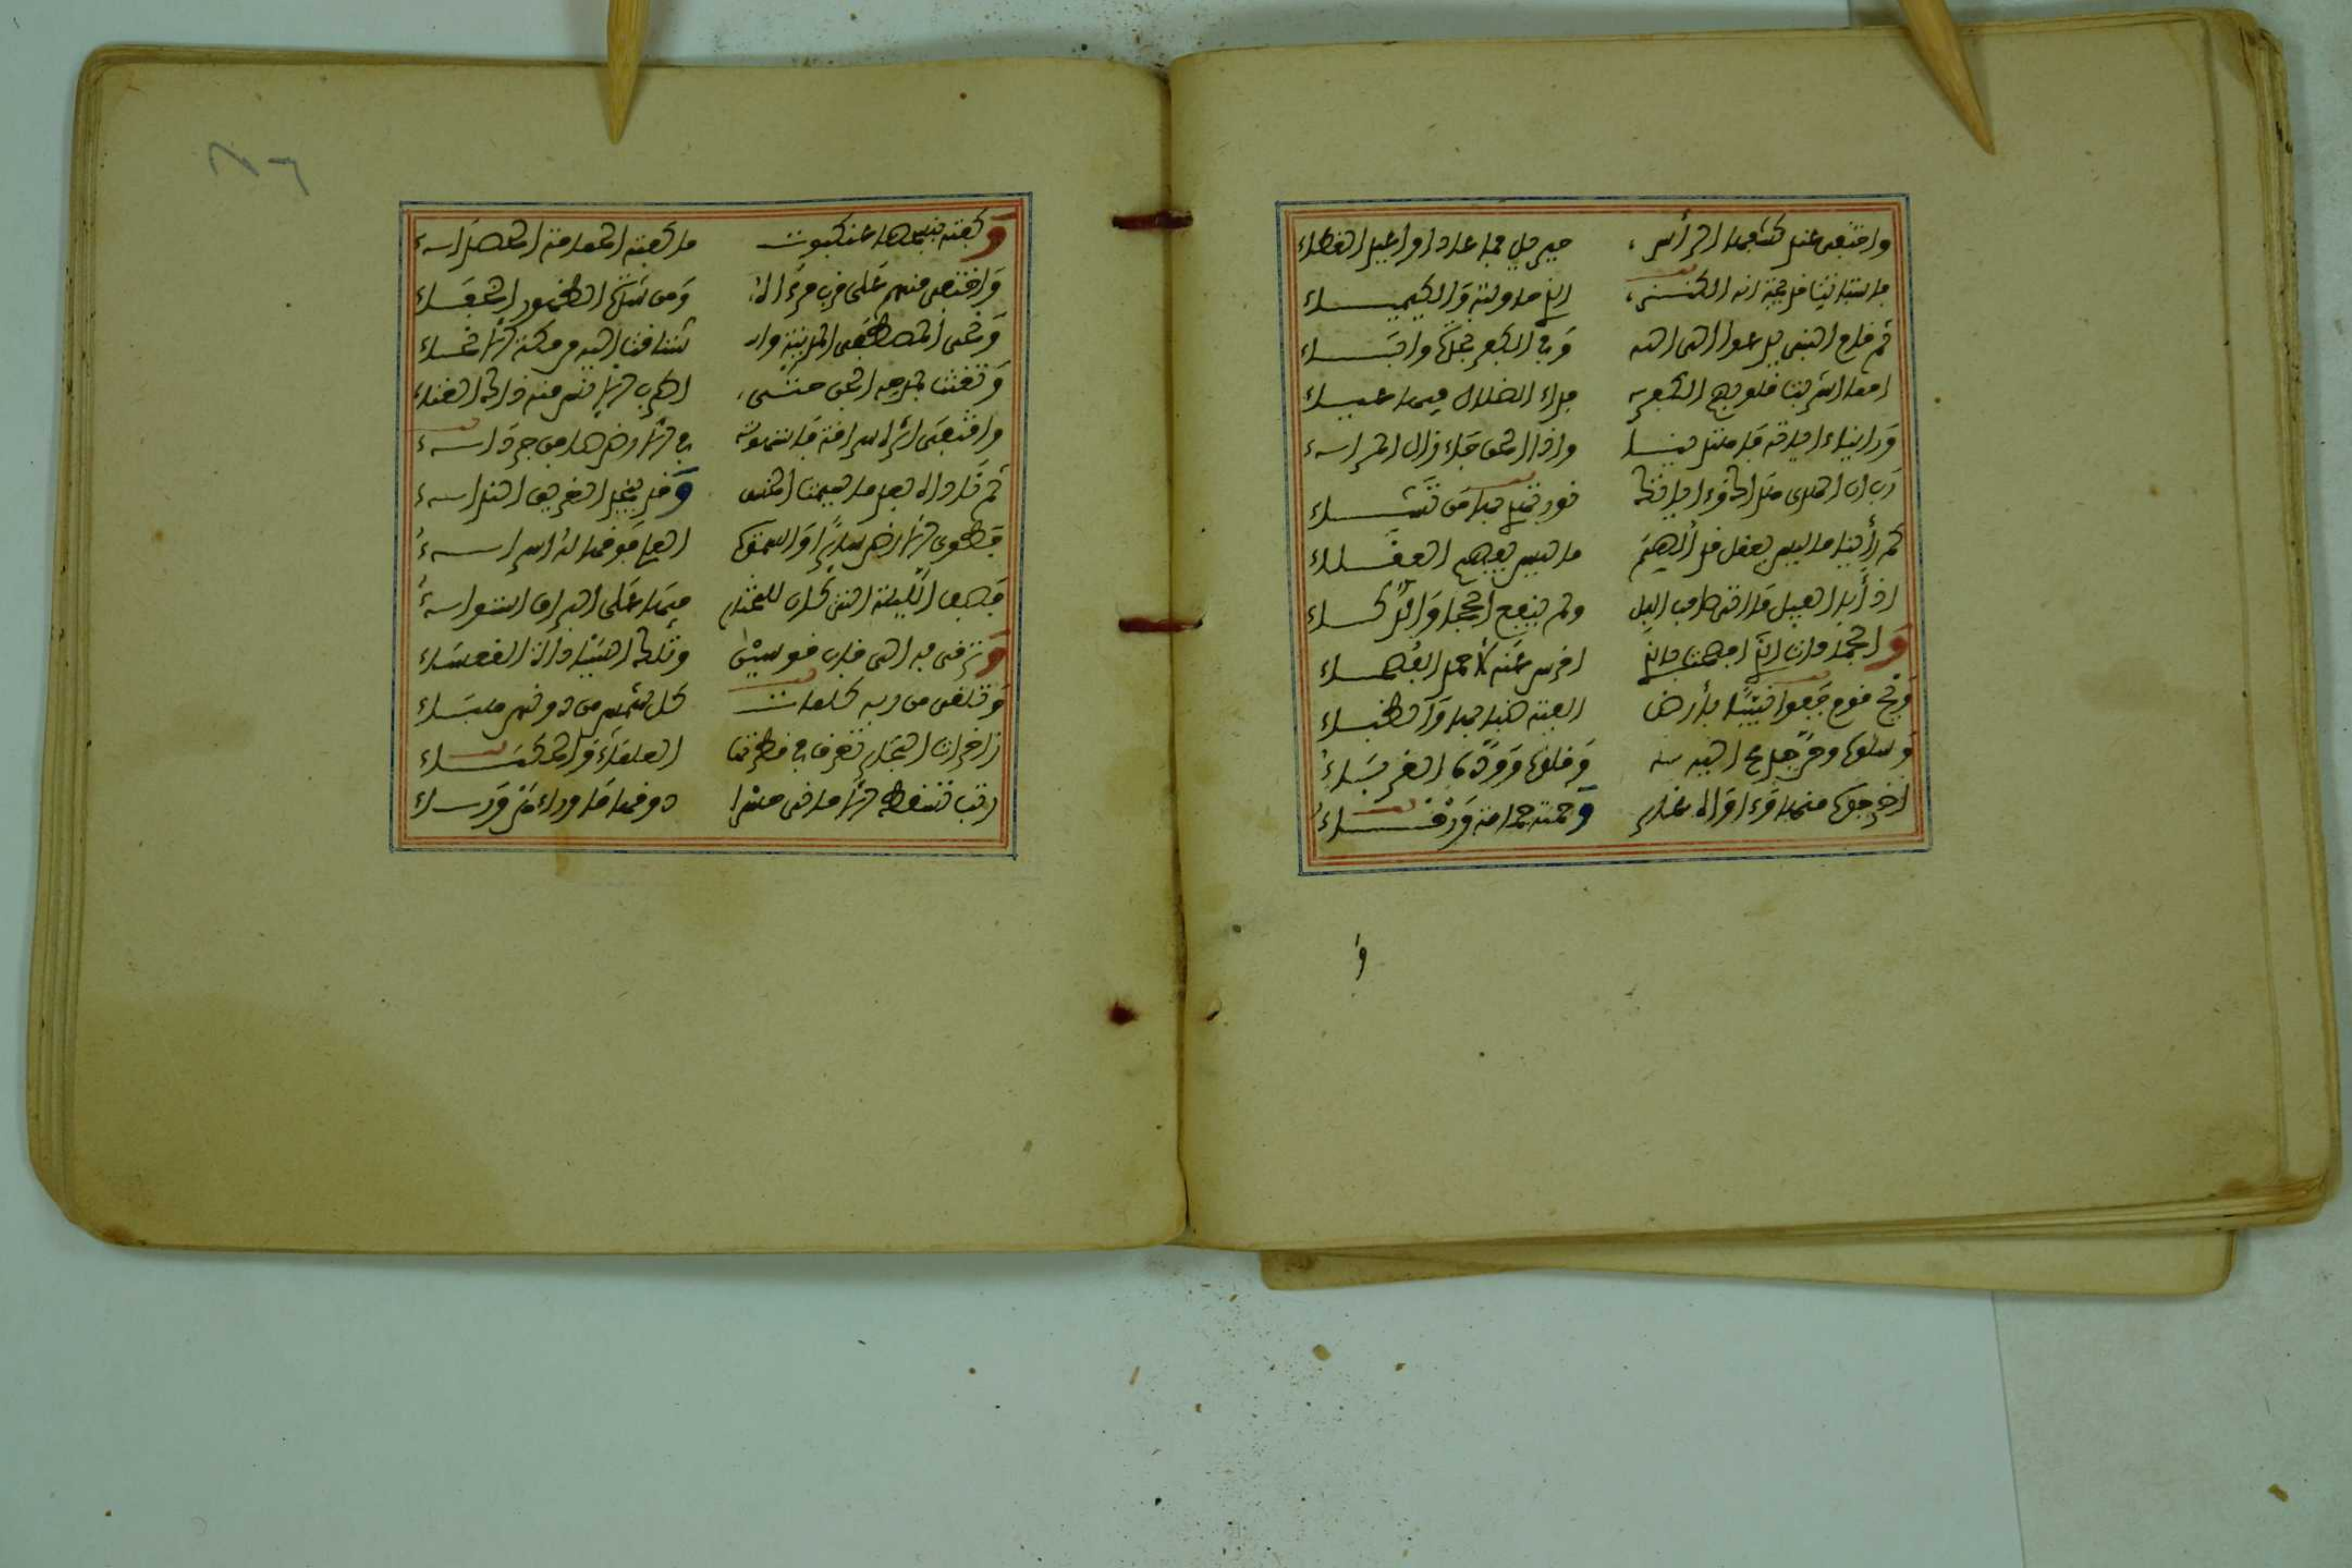 فاختفى عند كشفها الرأس جبريل فما عاد أو أعيد الغطاء
فاستبانت خديجة أنه الكنز الذي حاولته والكيمياء
ثم قام النبي يدعوا إلى الله وفي الكفر نجدة وإباء
أمما أشربت قلوبهم الكفر فداء الضلال فيهم عياء
ورأينا آياته فاهتدينا وإذا الحق جاء زال المراء
رب إن الهدى هداك وءاياتك نور تهدي بها من تشاء
كم رأينا ما ليس يعقل قد ألهم ما ليس يلهم العقلاء
إذ أبى الفيل ما أتى صاحب الفيل ولم ينفع الحجا والذكاء
والجمادات أفصحت بالذي أخرس عنه لأحمد الفصحاء
ويح قوم جفوا نبيا بأرض ألفته ضبابها والظباء
وسلوه وحن جذع إليه وقلوه ووده الغرباء
أخرجوه منها وءاواه غار وحمته حمامة ورقاء
وكفته بنسجها عنكبوت ما كفته الحمامة الحصداء
واختفى منهم على قرب مرءاه ومن شدة الظهور الخفاء
ونحى المصطفى المدينة واشتاقت إليه من مكة الأنحاء
وتغنت بمدحه الجن حتى أطرب الإنس منه ذاك الغناء
واقتفى إثره سراقة فاستهوته في الأرض جرداء
ثم ناداه بعد ما سيمت الخسف وقد ينجد الغريق النداء
فطوى الأرض سائرا والسموات العلا فوقها له إسراء
فصف الليلة التي كان للمختار فيها على البراق استواء
وترقى به إلى قاب قوسين وتلك السيادة القعساء
وتلقى من ربه كلمات كل علم من دونهن هباء
زاخرات البحار تغرق في قطرتها العلماء والحكماء
رتب تسقط الأماني حسرا دونها ما وراءهن وراء